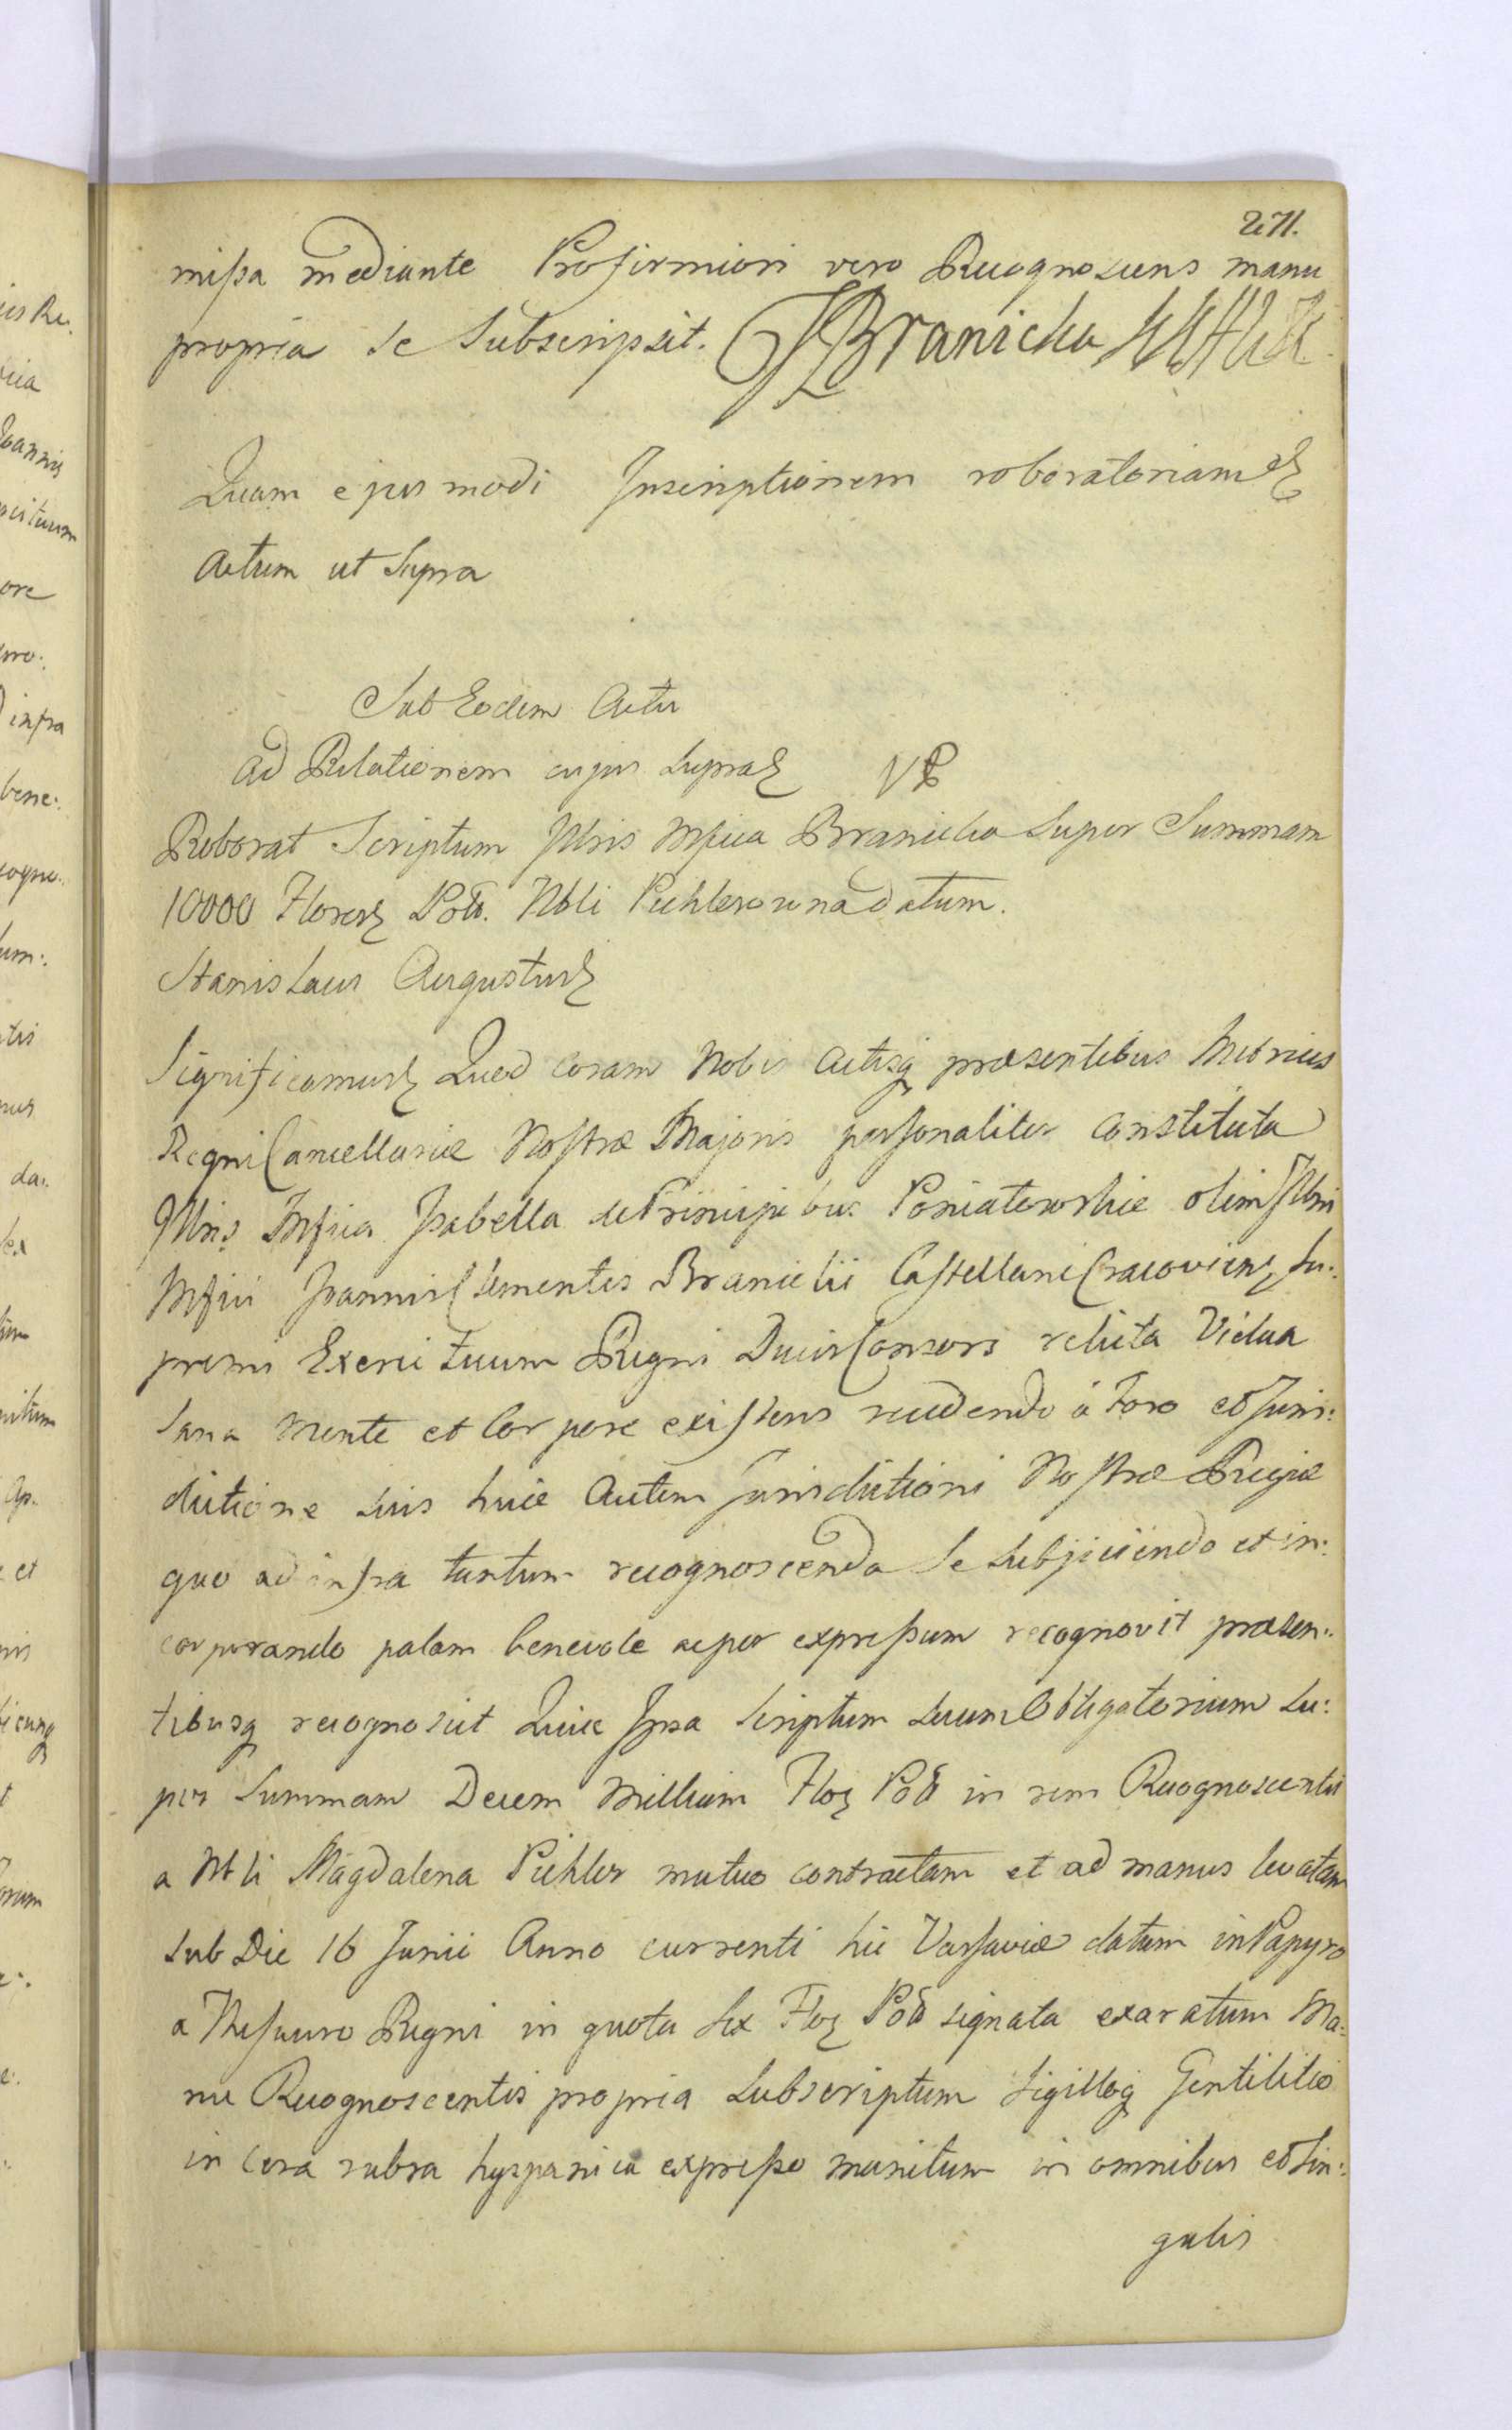 271.
missa mediante Pro firmiori vero Recognoscens manu
propria se Subscripsit. Branicka
Quam ejus modi Inscriptionem roboratoriam etc
Actum ut Supra
Sub Eodem Actu
ad Relationem cujus supra etc VP
Roborat Scriptum Illris Mfica Branicka super Summam
10000 Floren Pol. Nbli Pichlerowna datum.
Stanislaus Augustus etc
Significamus etc Quod coram Nobis Actisq praesentibus Metrices
Regni Cancellariæ Nostræ Majoris personaliter constituta
Illris Mfica Isabella de Principibus Poniatowskie olim Illris
Mfici Joannis Clementis Branicii Castellani Cracoviens, Su:
premi Exercituum Regni Ducis Consors relicta Vidua
sana mente et Corpore existens recedendo à Foro et Juris:
dictione suis huic autem Jurisdictioni Nostræ Regiæ
quo ad infra tantum recognoscenda se subjiciendo et in:
corporando palam benevole ac per expressum recognovit præsen:
tibusq recognoscit Quia Ipsa Scriptum suum Obligatorium su:
per Summam Decem Millium Flor Pol in rem Recognoscentis
a Nbli Magdalena Pichler mutuo contractam et ad manus levatam
sub Die 16 Junii Anno currenti hic Varsaviæ datum in Papyro
a Thesauro Regni in quota sex Flor Pol signata exaratum Ma:
nu Recognoscentis propria subscriptum Sigilloq Gentilitio
in cera rubra hyspanica expresso munitum in omnibus et sin:
gulis